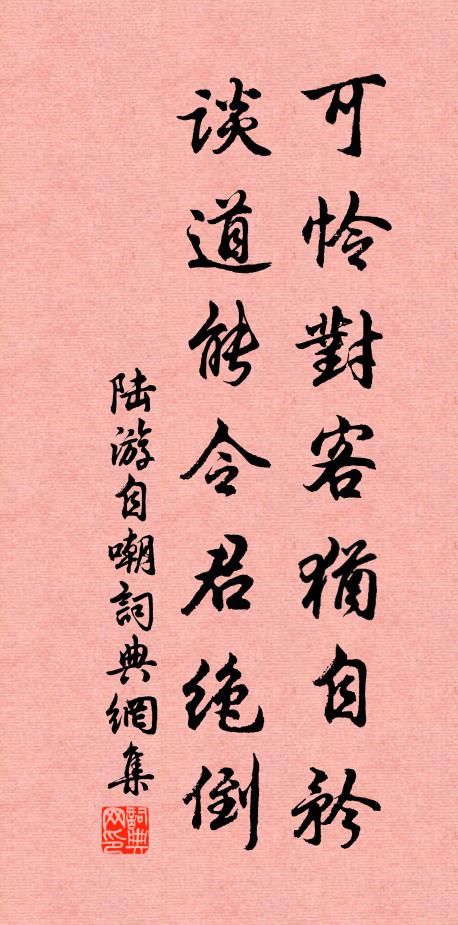 可怜對客猶自矜
談道能令君绝倒
陆游自嘲詞典網集
詞典网印